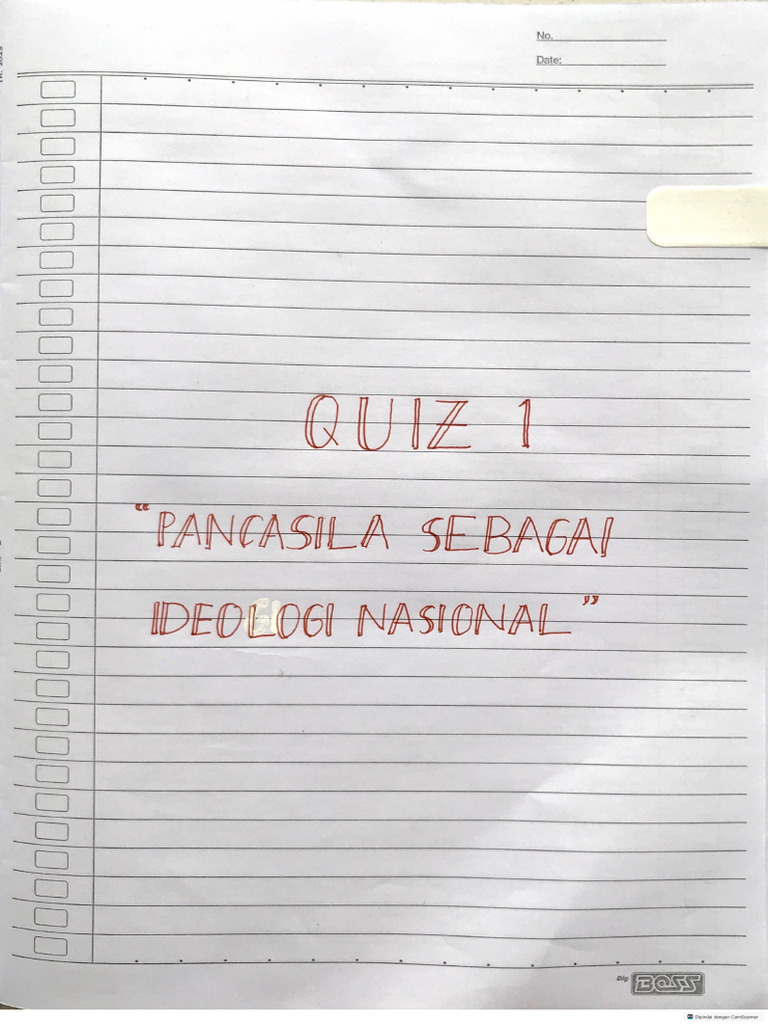 No.
Date:
QUIZ 1
"PANCASILA SEBAGAI
IDEOLOGI NASIONAL"
Big BOSS
Dipindai dengan CamScanner